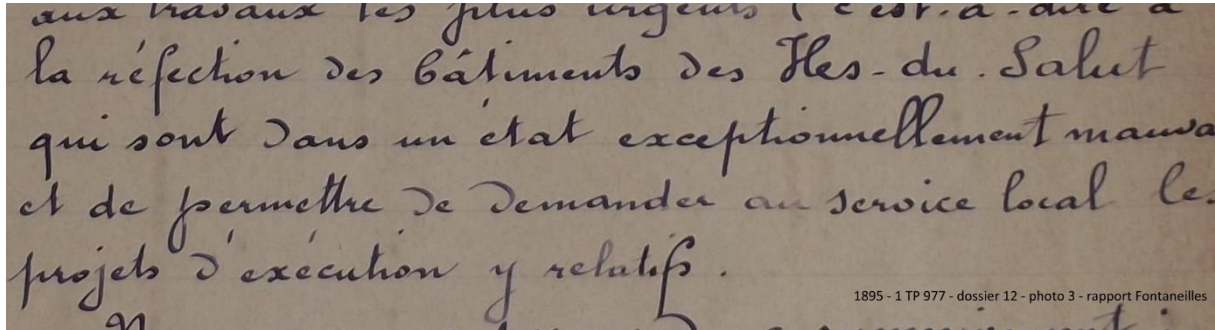 aux travaux les plus urgents (c'est-à-dire à
la réfection des bâtiments des Iles-du-Salut
qui sont dans un état exceptionnellement mauva
et de permettre de demander au service local le
projets d'exécution y relatifs.
1895 - 1 TP 977 - dossier 12 - photo 3 - rapport Fontaneilles